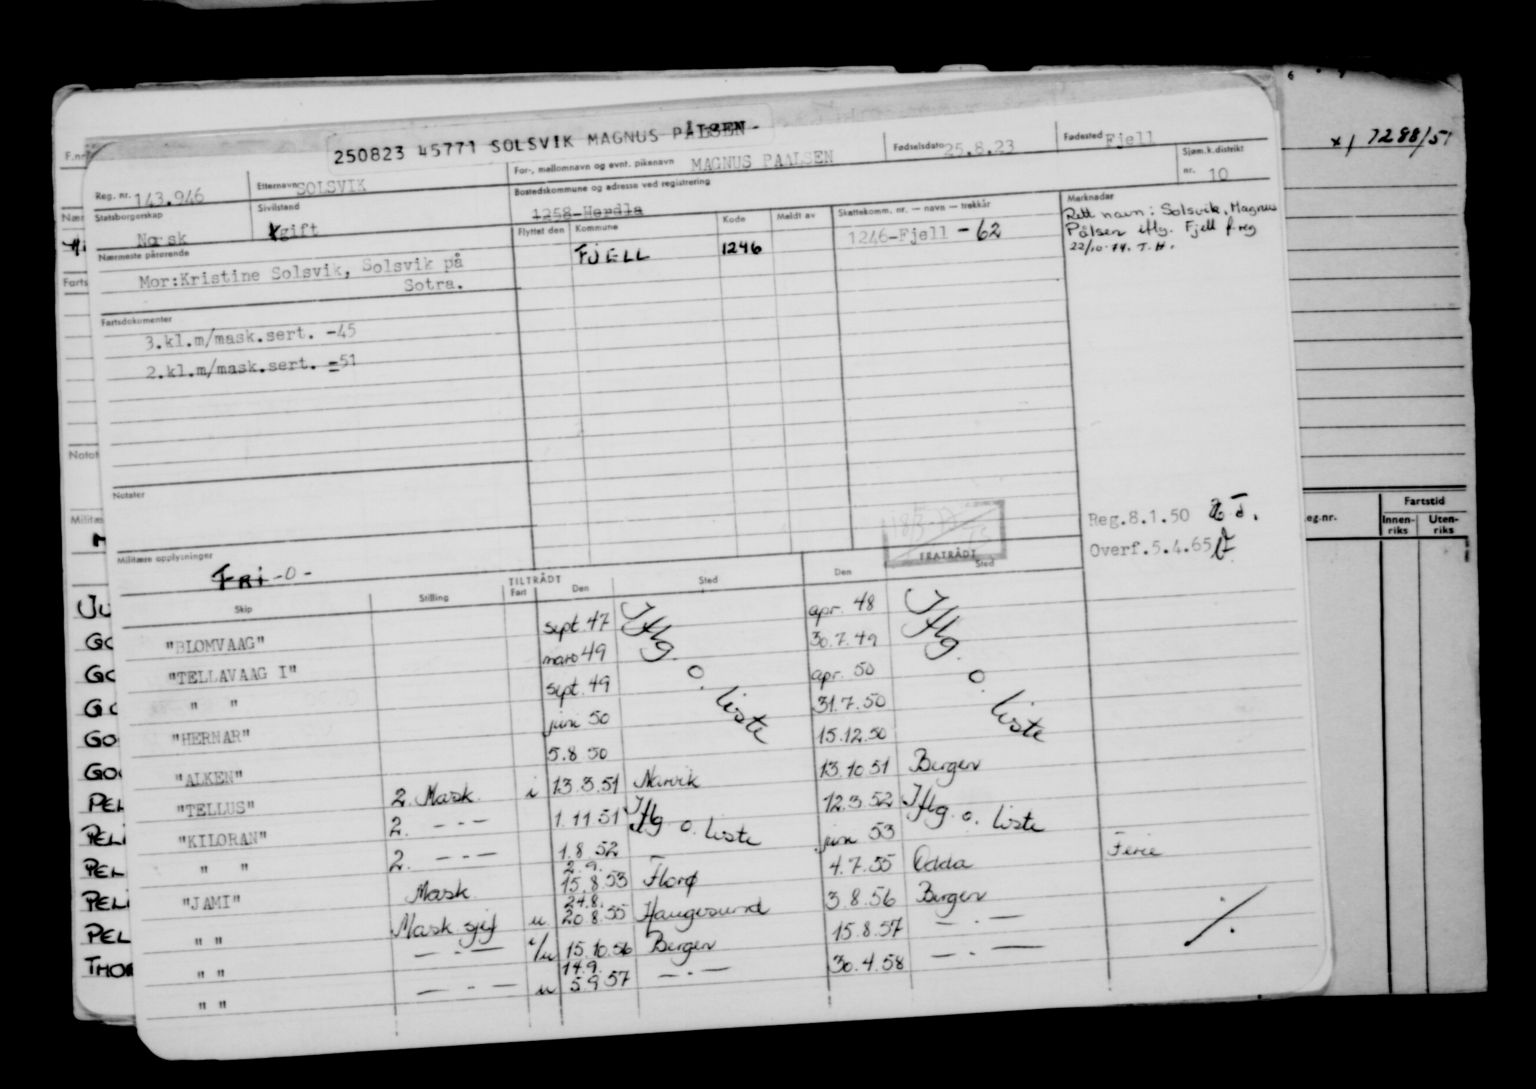 250823 45771 SOLSVIK MAGNUS PÅLSEN
x) 7288/51
F.nr
Reg. nr. 143.946
Etternavn SOLSVIK
For-, mellomnavn og evnt. pikenavn MAGNUS PAALSEN
Fødselsdato 25.8.23
Fødested Fjell
Statsborgerskap
Norsk
Sivilstand
gift
Bostedskommune og adresse ved registrering
1258-Herdla
Sjøm.k.distrikt
nr. 10
Nærmeste pårørende
Mor:Kristine Solsvik, Solsvik på
Sotra.
Flyttet den Kommune Kode Meldt av Skattekomm. nr. — navn — trekkår
FJELL 1246 1246-Fjell -62
Merknader
Rett navn: Solsvik, Magnus
Pålsen iflg. Fjell f.reg
22/10-74. T.H.
Fartsdokumenter
3.kl.m/mask.sert. -45
2.kl.m/mask.sert. -51
Notater
Reg.8.1.50
Overf.5.4.65
FRATRÅDT
Militære opplysninger
FRI -0-
TILTRÅDT
Skip Stilling Fart Den Sted Den Sted
"BLOMVAAG" sept. 47 Iflg. o. liste apr. 48 Iflg. o. liste
"TELLAVAAG I" mars 49 30.7.49
" " sept. 49 apr. 50
"HERNAR" juni 50 31.7.50
"ALKEN" 5.8 50 15.12.50
"TELLUS" 2. Mask. i 13.3.51 Narvik 13.10.51 Bergen
"KILORAN" 2. -"- 1.11.51 Iflg. o. liste 12.3.52 Iflg. o. liste
" " 2. -"- 1.8.52 juni 53
"JAMI" Mask 2.9. 15.8.53 Florø 4.7.55 Odda Ferie
" " Mask sjef u 24.8. 20.8.55 Haugesund 3.8.56 Bergen
" " -"- i/u 15.10.56 Bergen 15.8.57 -"-
" " -"- u 14.9. 5.9.57 -"- 30.4.58 -"-
Fartstid
eg.nr. Innen-
riks Uten-
riks
Nær
Farts
Notat
Militæ
GO
GO
GO
GO
GO
PEL
PEL
PEL
PEL
PEL
THO